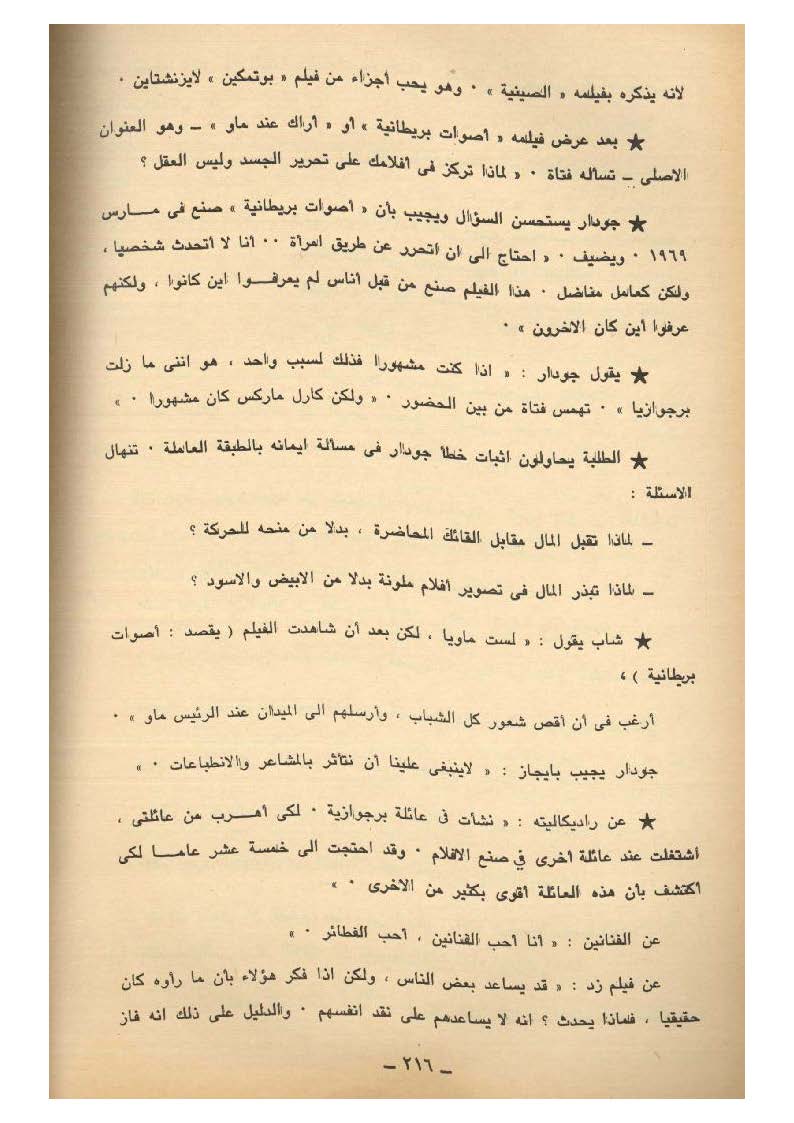 لأنه يذكره بفيلمه « الصينية » ٠ وهو يحب أجزاء من فيلم « بوتمكين » لايزنشتاين ٠
★ بعد عرض فيلمه « أصوات بريطانية » أو « أراك عند ماو » ــ وهو العنوان
الاصلى ــ تسأله فتاة ٠ « لماذا تركز فى أفلامك على تحرير الجسد وليس العقل ؟
★ جودار يستحسن السؤال ويجيب بأن « أصوات بريطانية » صنع فى مــارس
١٩٦٩ ٠ ويضيف ٠ « احتاج الى ان اتحرر عن طريق امرأة ٠٠ أنا لا أتحدث شخصيا ،
ولكن كعامل مناضل ٠ هذا الفيلم صنع من قبل أناس لم يعرفــوا اين كانوا ، ولكنهم
عرفوا أين كان الاخرون » ٠
★ يقول جودار : « اذا كنت مشهورا فذلك لسبب واحد ، هو اننى ما زلت
برجوازيا » ٠ تهمس فتاة من بين الحضور ٠ « ولكن كارل ماركس كان مشهورا ٠ »
★ الطلبة يحاولون اثبات خطأ جودار فى مسألة ايمانه بالطبقة العاملة ٠ تنهال
الاسئلة :
ــ لماذا تقبل المال مقابل القائك المحاضرة ، بدلا من منحه للحركة ؟
ــ لماذا تبذر المال فى تصوير أفلام ملونة بدلا من الابيض والاسود ؟
★ شاب يقول : « لست ماويا ، لكن بعد أن شاهدت الفيلم ( يقصد : أصوات
بريطانية ) ،
أرغب فى أن أقص شعور كل الشباب ، وأرسلهم الى الميدان عند الرئيس ماو » ٠
جودار يجيب بايجاز : « لاينبغى علينا أن نتأثر بالمشاعر والانطباعات ٠ »
★ عن راديكاليته : « نشأت فى عائلة برجوازية ٠ لكى أهــرب من عائلتى ،
أشتغلت عند عائلة أخرى في صنع الافلام ٠ وقد احتجت الى خمسة عشر عامــا لكى
أكتشف بأن هذه العائلة أقوى بكثير من الاخرى ٠ »
عن الفنانين : « أنا أحب الفنانين ، أحب الفطائر ٠ »
عن فيلم زد : « قد يساعد بعض الناس ، ولكن اذا فكر هؤلاء بأن ما رأوه كان
حقيقيا ، فماذا يحدث ؟ انه لا يساعدهم على نقد انفسهم ٠ والدليل على ذلك انه فاز
ــ ٢١٦ ــ